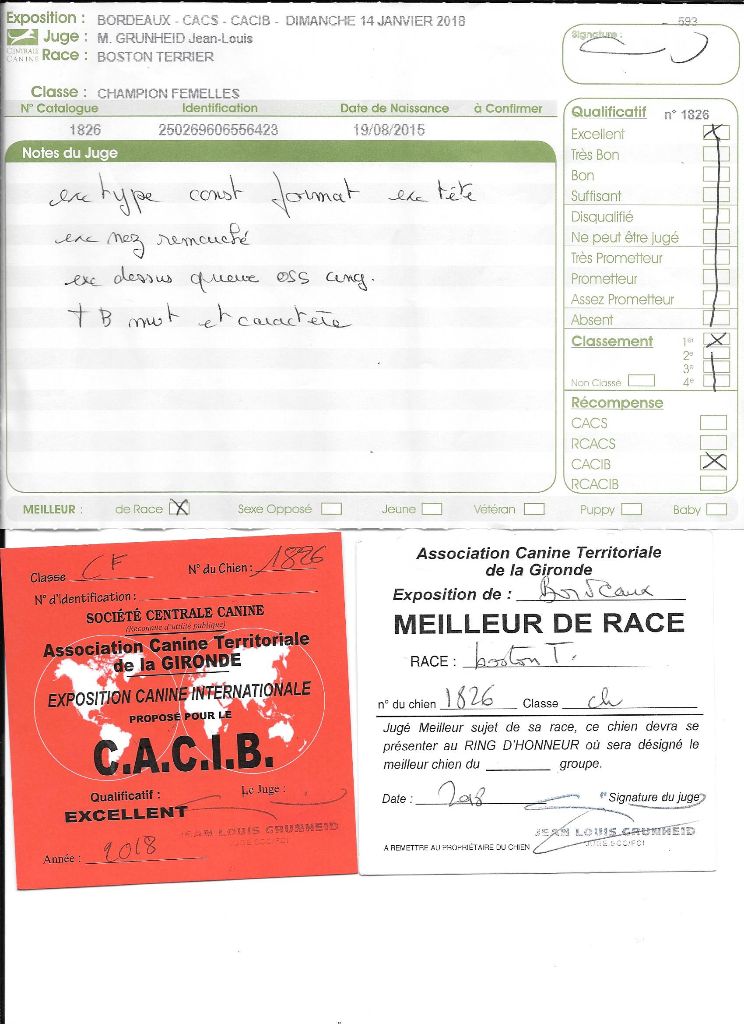 Exposition : BORDEAUX - CACS - CACIB - DIMANCHE 14 JANVIER 2018
593
Juge : M. GRUNHEID Jean-Louis
Signature :
CENTRALE CANINE
Race : BOSTON TERRIER
Classe : CHAMPION FEMELLES
N° Catalogue Identification Date de Naissance à Confirmer
1826 250269606556423 19/08/2015
Notes du Juge
exc type const format exc tête
exc nez remouché
exc dessus queue oss ang.
TB mvt et caractère
Qualificatif n° 1826
Excellent X
Très Bon
Bon
Suffisant
Disqualifié
Ne peut être jugé
Très Prometteur
Prometteur
Assez Prometteur
Absent
Classement 1er X
2e
3e
Non Classé 4e
Récompense
CACS
RCACS
CACIB X
RCACIB
MEILLEUR : de Race X Sexe Opposé Jeune Vétéran Puppy Baby
Classe CF N° du Chien : 1826
N° d'identification :
SOCIÉTÉ CENTRALE CANINE
(Reconnue d'utilité publique)
Association Canine Territoriale
de la GIRONDE
EXPOSITION CANINE INTERNATIONALE
PROPOSÉ POUR LE
C.A.C.I.B.
Qualificatif : Le Juge :
EXCELLENT
JEAN LOUIS GRUNHEID
JUGE SCC/FCI
Année : 2018
Association Canine Territoriale
de la Gironde
Exposition de : Bordeaux
MEILLEUR DE RACE
RACE : boston T.
n° du chien 1826 Classe ch
Jugé Meilleur sujet de sa race, ce chien devra se
présenter au RING D'HONNEUR où sera désigné le
meilleur chien du groupe.
Date : 2018 Signature du juge
JEAN LOUIS GRUNHEID
JUGE SCC/FCI
A REMETTRE AU PROPRIÉTAIRE DU CHIEN